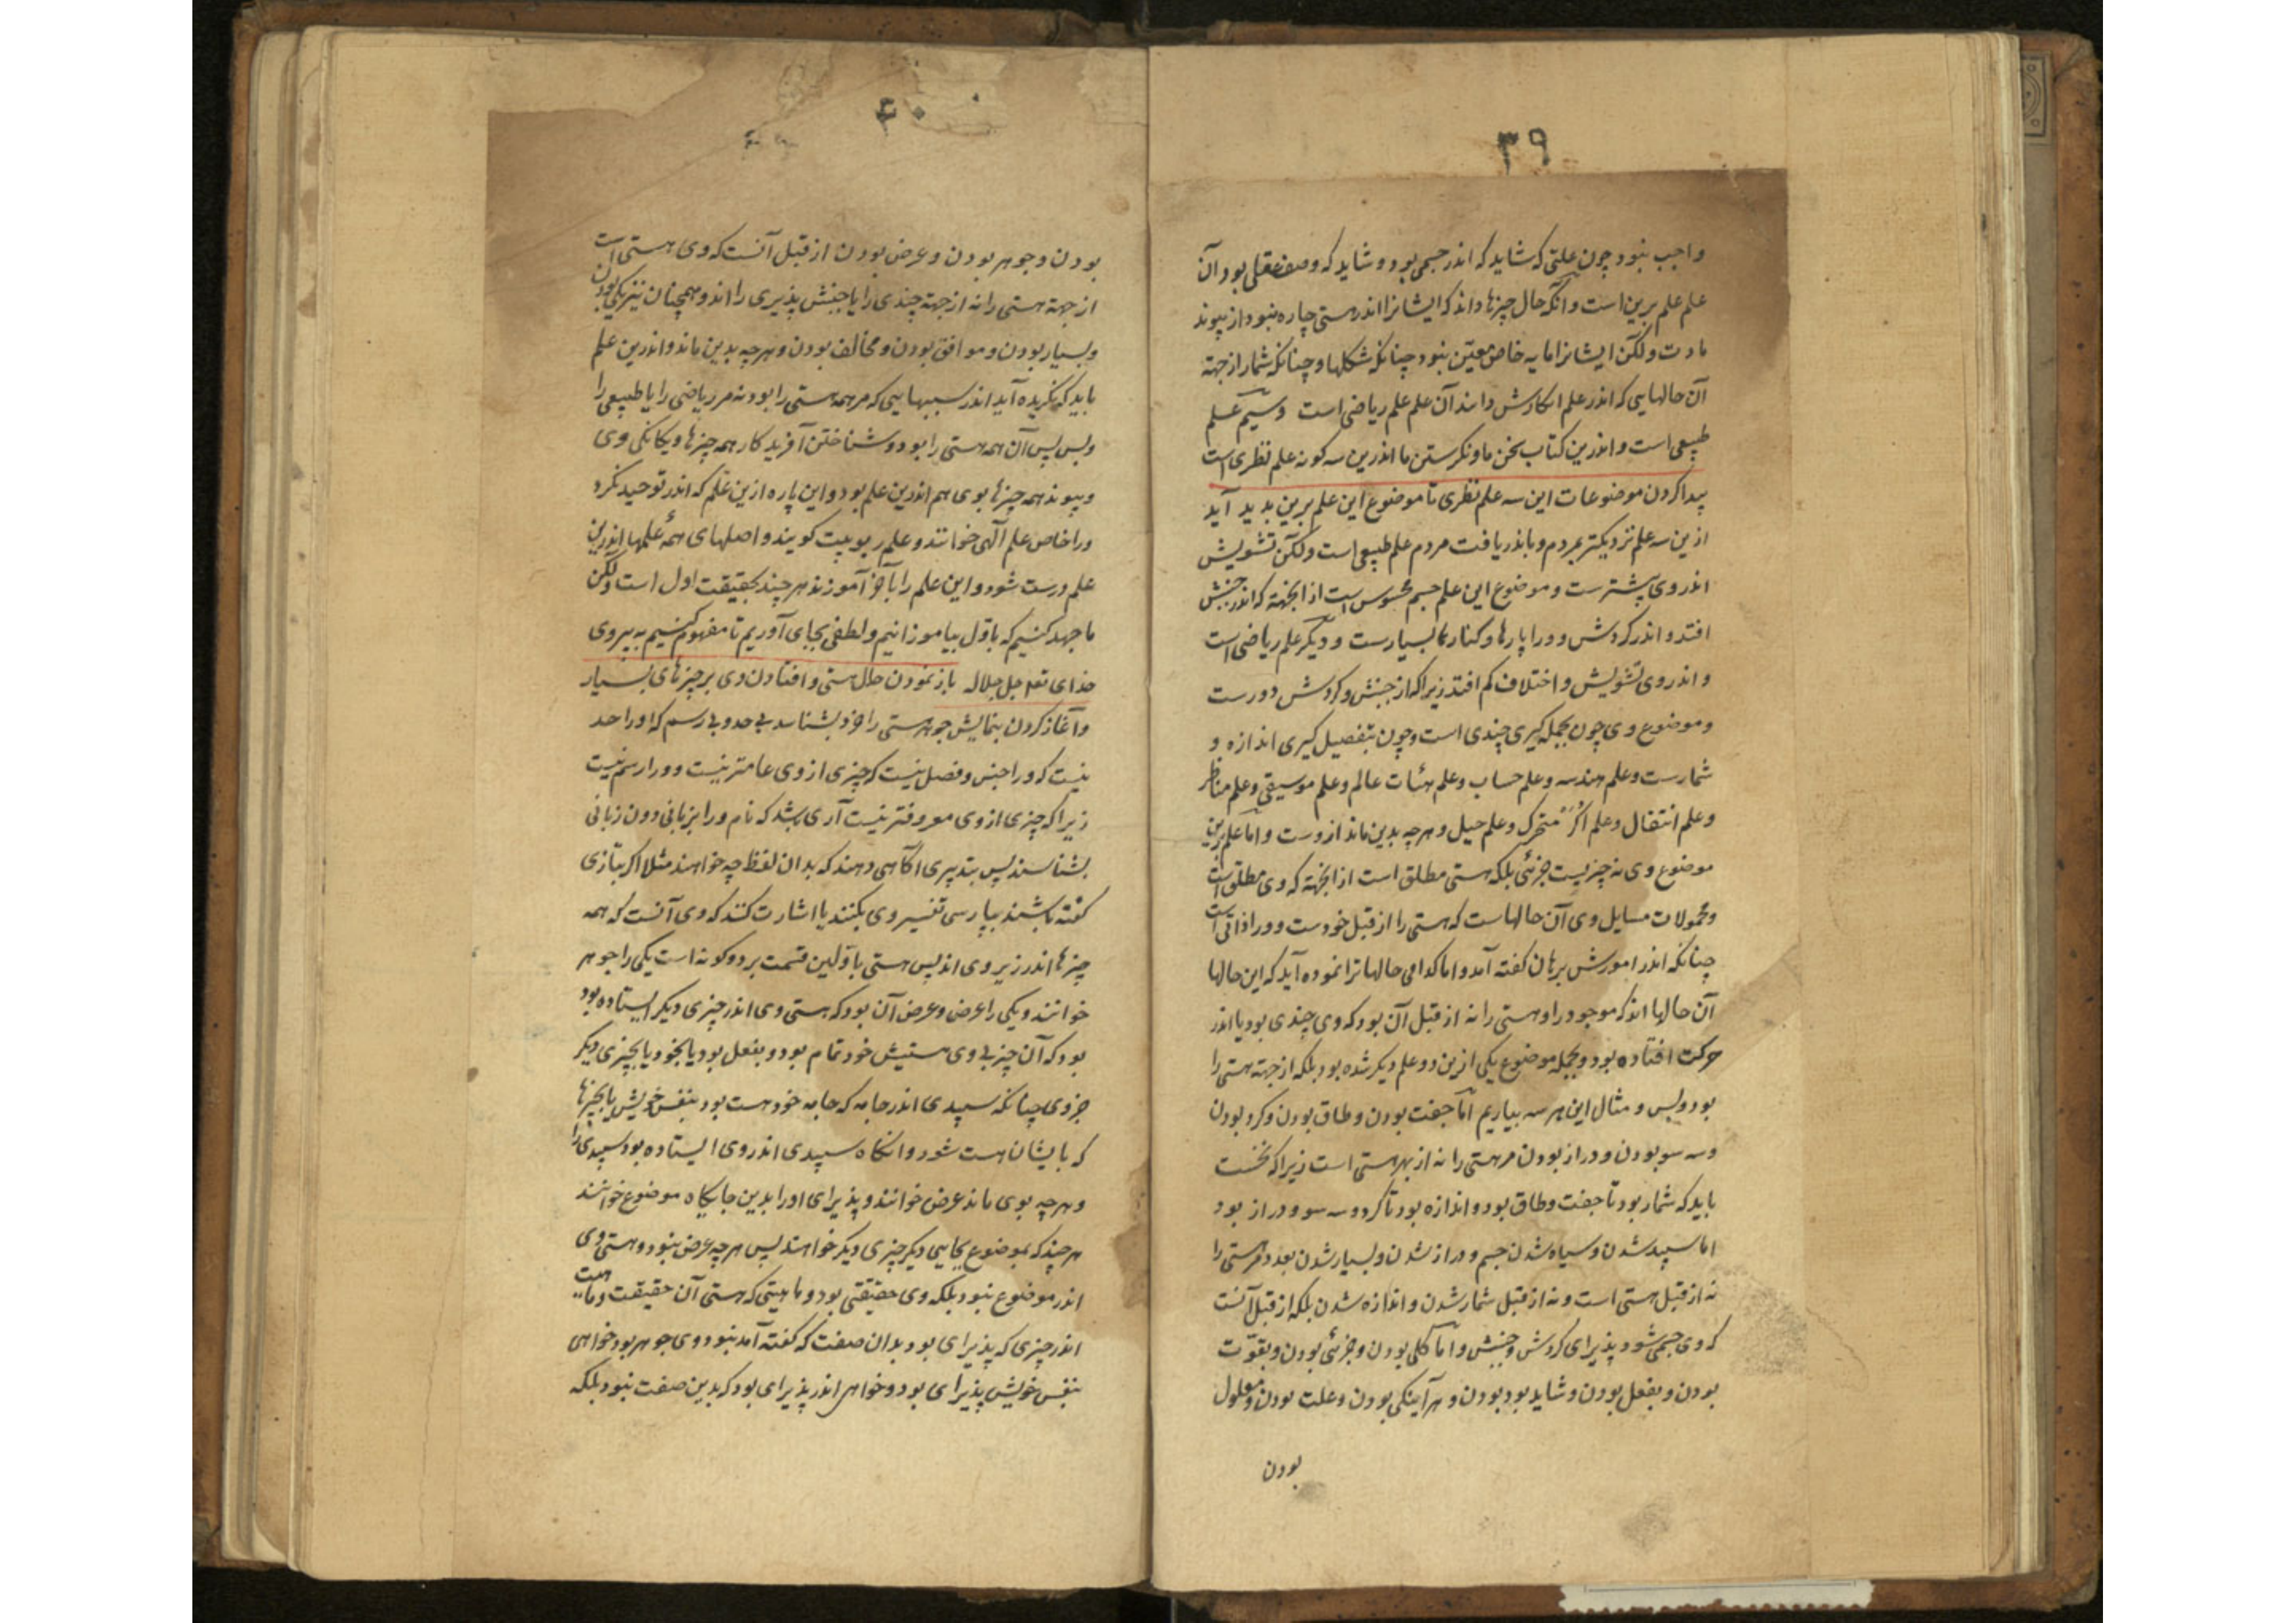 ۳۹
واجب نبود چون علتی که شاید که اندر جسمی بود و شاید که وصف عقلی بود آن
علم علم برین است و آنکه حال چیزها داند که ایشانرا اندر هستی چاره نبود از پیوند
مادت ولکن ایشانرا مایه خاص معین نبود چنانکه شکلها و چنانکه شمار از جهته
آن حالهایی که اندر علم انکارش دانند آن علم علم ریاضی است وسیم علم
طبیعی است و اندرین کتاب سخن ما و نکرستن ما اندرین سه کونه علم نظری است
پیدا کردن موضوعات این سه علم نظری تا موضوع این علم برین بدید آید
ازین سه علم نزدیکتر بمردم و باندریافت مردم علم طبیعی است ولکن تشویش
اندر وی بیشترست و موضوع این علم جسم محسوس است از انجهته که اندر جنبش
افتد و اندر کردش و ورا پارها و کنارها بسیارست و دیکر علم ریاضی است
و اندر وی تشویش و اختلاف کم افتد زیرا که از جنبش و کردش دورست
و موضوع وی چون بجمله کیری چندی است و چون بتفصیل کیری اندازه و
شمارست و علم هندسه و علم حساب و علم هیئات عالم و علم موسیقی و علم مناظر
و علم انتقال و علم اکر متحرک و علم حیل و هرچه بدین ماند ازوست و اما علم برین
موضوع وی نه چیزیست جزئی بلکه هستی مطلق است از انجهته که وی مطلق است
و محمولات مسایل وی آن حالهاست که هستی را از قبل خودست و ورا ذاتی است
چنانکه اندر امورش برهان کفته آمد و اما کدامی حالها ترا نموده آید که این حالها
آن حالها اند که موجود را و هستی را نه از قبل آن بود که وی چندی بود یا اندر
حرکت افتاده بود و بجمله موضوع یکی ازین دو علم دیکر شده بود بلکه از جهته هستی را
بود و بس و مثال این هر سه بیاریم اما جفت بودن و طاق بودن و کرد بودن
و سه سو بودن و دراز بودن مر هستی را نه از بهر هستی است زیرا که نخست
باید که شمار بود تا جفت و طاق بود و اندازه بود تا کرد و سه سو و دراز بود
اما سپید شدن و سیاه شدن جسم و دراز شدن و بسیار شدن بعدد مر هستی را
نه از قبل هستی است و نه از قبل شمار شدن و اندازه شدن بلکه از قبل آنست
که وی جسمی شود پذیرای کردش و جنبش و اما کلی بودن و جزئی بودن و بقوت
بودن و بفعل بودن و شاید بود بودن و هر آینکی بودن و علت بودن و معلول
بودن
۴۰
بودن و جوهر بودن و عرض بودن از قبل آنست که وی هستی است
از جهته هستی را نه از جهته چندی را یا جنبش پذیری را اند و همچنان نیز یکی بودن
و بسیار بودن و موافق بودن و مخالف بودن و هرچه بدین ماند و اندرین علم
باید که نکریده آید اندر سببهایی که مر همه هستی را بود نه مر ریاضی را یا طبیعی را
و بس پس آن همه هستی را بود و شناختن آفریدکار همه چیزها و یکانکی وی
و پیوند همه چیزها بوی هم اندرین علم بود و این پاره ازین علم که اندر توحید نکرد
ورا خاص علم آلهی خوانند و علم ربوبیت کویند و اصلهای همهٔ علمها اندرین
علم درست شود و این علم را بآخر آموزند هر چند بحقیقت اول است ولکن
ما جهد کنیم که باول بیاموزانیم و لطفی بجای آوریم تا مفهوم کنیم به نیروی
خدای تعالی جل جلاله باز نمودن حال هستی و افتادن وی بر چیزهای بسیار
و آغاز کردن بنمایش جوهر هستی را خرد بشناسد بی حد و بی رسم که او را حد
نیست که ورا جنس و فصل نیست که چیزی از وی عامتر نیست و ورا رسم نیست
زیرا که چیزی از وی معروفتر نیست آری باشد که نام ورا بزبانی دون زبانی
بشناسند پس بتدبیری آگاهی دهند که بدان لفظ چه خواهند مثلا اکر بتازی
کفته باشند بپارسی تفسیر وی بکنند یا اشارت کنند که وی آنست که همه
چیزها اندر زیر وی اند پس هستی باولین قسمت بر دو کونه است یکی را جوهر
خوانند و یکی را عرض و عرض آن بود که هستی وی اندر چیزی دیکر ایستاده بود
بود که آن چیز بی وی هستیش خود تمام بود و بفعل بود یا بخود یا بچیزی دیکر
جز وی چنانکه سپیدی اندر جامه که جامه خود هست بود بنفس خویش یا بچیزها
که بایشان هست شود و انکاه سپیدی اندر وی ایستاده بود سپیدی را
و هرچه بوی ماند عرض خوانند و پذیرای اورا بدین جایکاه موضوع خوانند
هر چند که بموضوع بجایی دیکر چیزی دیکر خواهند پس هرچه عرض نبود و هستی وی
اندر موضوع نبود بلکه وی حقیقتی بود و ماهیتی که هستی آن حقیقت و ماهیت
اندر چیزی که پذیرای بود بدان صفت که کفته آمد نبود وی جوهر بود خواهی
بنفس خویش پذیرای بود و خواهی اندر پذیرای بود که بدین صفت نبود بلکه